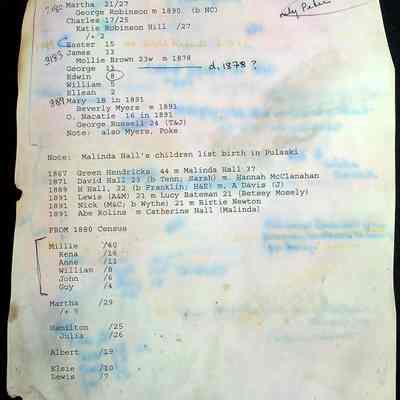 Martha 21/27
George Robinson m 1890 (b NC)
Charles 17/25
Katie Robinson Hill /27
/+ 2
Easter 15
James 13
Mollie Brown 23w m 1878
George 12 d. 1878?
Edwin 8
William 5
Ellean 2
Mary 18 in 1891
Beverly Myers m 1891
O. Nacatie 16 in 1891
George Russell 24 (T&J)
Note: also Myers, Poke
Note: Malinda Hall's children list birth in Pulaski
1867 Green Hendricks 44 m Malinda Hall 37
1871 David Hall 23 (b Tenn; Sarah) m Hannah McClanahan
1889 H Hall, 22 (b Franklin; H&E) m. A Davis (J)
1891 Lewis (A&M) 21 m Lucy Bateman 21 (Betsey Mosely)
1891 Nick (M&C; b Wythe) 21 m Birtie Newton
1891 Abe Rolins m Catherine Hall (Malinda)
FROM 1880 Census
Millie /40
Rena /16
Anne /11
William /8
John /6
Guy /4
Martha /29
Hamilton /25
Julia /26
Albert /19
Elsie /10
Lewis /7